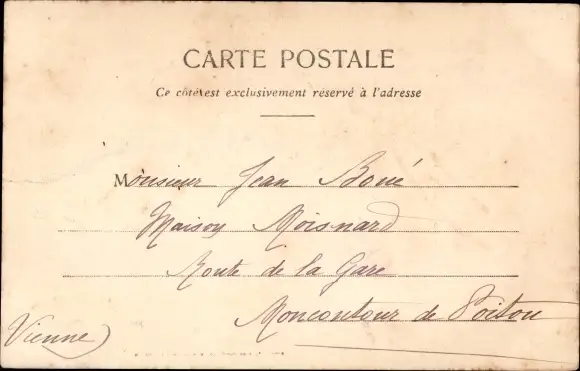 CARTE POSTALE
Ce côté est exclusivement réservé à l'adresse
Monsieur Jean Boué
Maison Moisnard
Route de la Gare
Moncontour de Poitou
Vienne)